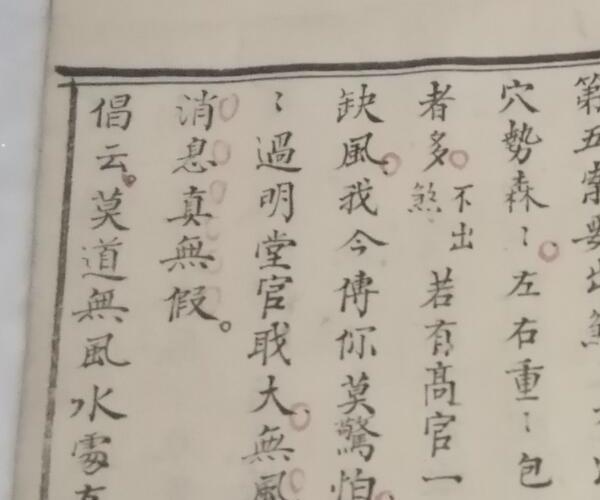 第五案要出煞
穴勢森〻左右重〻包
者多不出煞若有高官一
缺風我今傳你莫驚怕
〻過明堂官职大無風
消息真無假
倡云莫道無風水處有